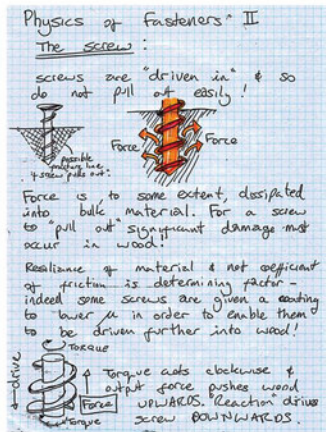 Physics of Fasteners: II
The screw:
screws are "driven in" & so
do not pull out easily!
possible
fracture line
if screw pulls out.
Force
Force
Force is, to some extent, dissipated
into bulk material. For a screw
to "pull out" significant damage must
occur in wood!
Resiliance of material & not coefficient
of friction is determining factor -
indeed some screws are given a coating
to lower μ in order to enable them
to be driven further into wood!
TORQUE
drive
Force
Torque
Torque acts clockwise &
output force pushes wood
UPWARDS. "Reaction" drives
screw DOWNWARDS.